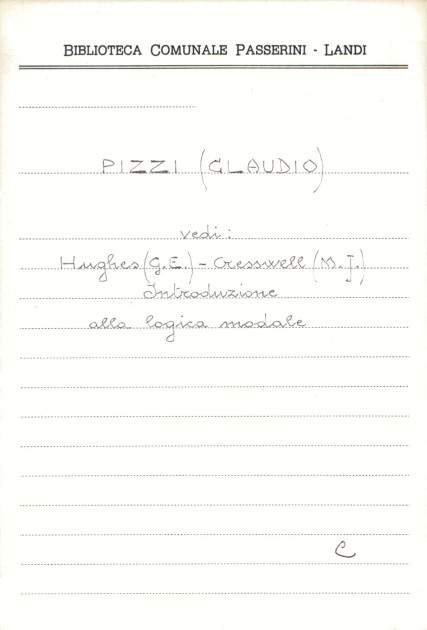 BIBLIOTECA COMUNALE PASSERINI - LANDI
PIZZI (CLAUDIO)
vedi:
Hughes (G.E.) - Cresswell (M.J.)
Introduzione
alla logica modale
C